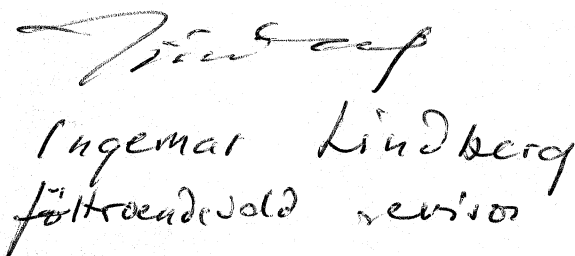 Ingemar Lindberg
förtroendevald revisor